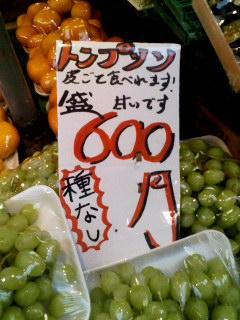 トンプソン
皮ごと食べれます!
盛 甘いです
600円
種なし